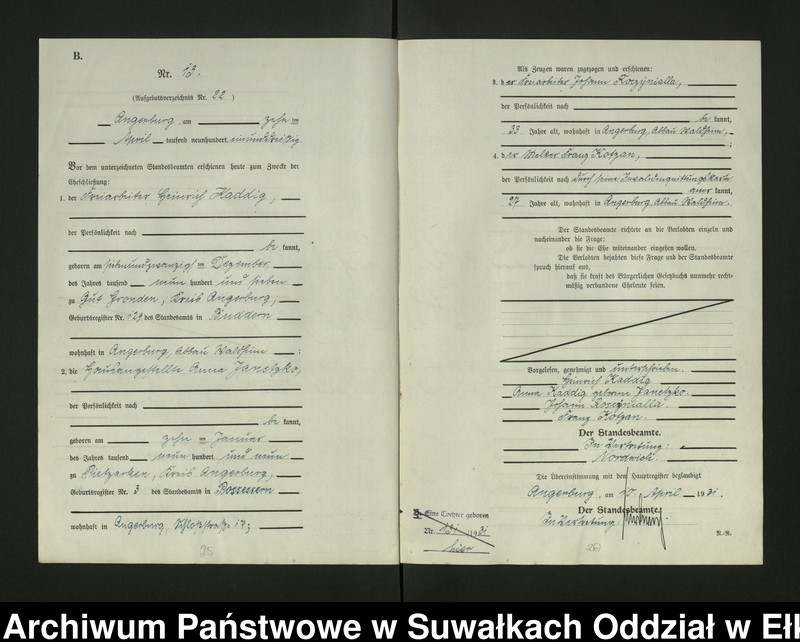 B.
Nr. 13.
(Aufgebotsverzeichnis Nr. 22 )
Angerburg, am zehn ten
April tausend neunhundert einunddreißig
Vor dem unterzeichneten Standesbeamten erschienen heute zum Zwecke der
Eheschließung:
1. der Bauarbeiter Heinrich Kaddig,
der Persönlichkeit nach
be kannt,
geboren am siebenundzwanzigsten Dezember
des Jahres tausend neun hundert und sieben
zu Gut Gronden, Kreis Angerburg,
Geburtsregister Nr. 129 des Standesamts in Buddern
wohnhaft in Angerburg, Abbau Waldheim ;
2. die Hausangestellte Anna Janetzko,
der Persönlichkeit nach
be kannt,
geboren am zehn ten Januar
des Jahres tausend neun hundert und neun
zu Pietzarken, Kreis Angerburg,
Geburtsregister Nr. 3 des Standesamts in Possessern
wohnhaft in Angerburg, Schloßstraße 17;
25
Als Zeugen waren zugezogen und erschienen:
3. der Bauarbeiter Johann
der Persönlichkeit nach
be kannt,
33 Jahre alt, wohnhaft in Angerburg, Abbau Waldheim,
;
4. der Melker Franz Kotzan,
der Persönlichkeit nach durch seine Invalidenquittungskarte
aner kannt,
27 Jahre alt, wohnhaft in Angerburg, Abbau Waldheim.
Der Standesbeamte richtete an die Verlobten einzeln und
nacheinander die Frage:
ob sie die Ehe miteinander eingehen wollen.
Die Verlobten bejahten diese Frage und der Standesbeamte
sprach hierauf aus,
daß sie kraft des Bürgerlichen Gesetzbuchs nunmehr recht-
mäßig verbundene Eheleute seien.
Vorgelesen, genehmigt und unterschrieben.
Heinrich Kaddig
Anna Kaddig geborene Janetzko.
Johann
Franz Kotzan.
Der Standesbeamte.
In Vertretung:
Nordwich.
Die Übereinstimmung mit dem Hauptregister beglaubigt
Angerburg, am 10. April 1931.
Der Standesbeamte
In Vertretung:
N.-R.
Eine Tochter geboren
Nr. 131 1931
hier
Archiwum Państwowe w Suwałkach Oddział w Eł